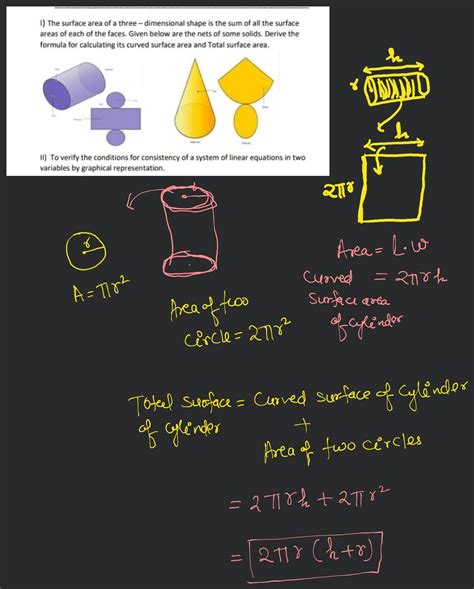 I) The surface area of a three – dimensional shape is the sum of all the surface
areas of each of the faces. Given below are the nets of some solids. Derive the
formula for calculating its curved surface area and Total surface area.
II) To verify the conditions for consistency of a system of linear equations in two
variables by graphical representation.
h
r
h
2πr
r
r
A = πr²
Area of two
circle = 2πr²
Area = L.w
Curved = 2πrh
Surface area
of cylinder
Total surface = Curved surface of cylinder
of cylinder
+
Area of two circles
= 2πrh + 2πr²
= 2πr (h+r)